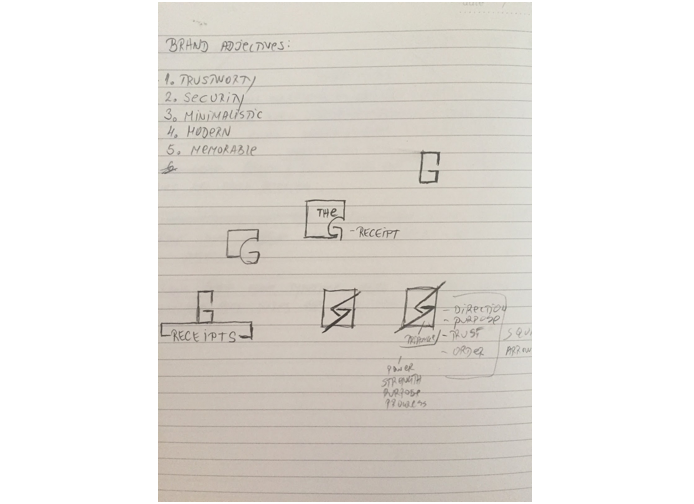 BRAND ADJECTIVES:
1. TRUSTWORTY
2. SECURITY
3. MINIMALISTIC
4. MODERN
5. MEMORABLE
6
G
THE
G - RECEIPT
G
G
RECEIPTS
- DIRECTION
- PURPOSE
- TRUST
- ORDER
POWER
STRENGTH
PURPOSE